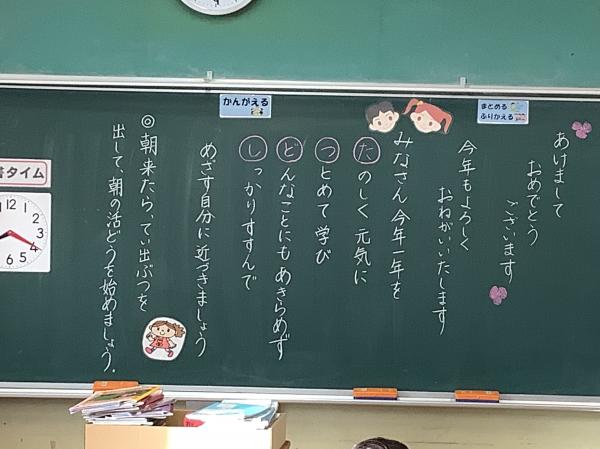 あけまして
おめでとう
ございます
今年もよろしく
おねがいいたします
みなさん 今年一年を
たのしく 元気に
つとめて 学び
どんなことにも あきらめず
しっかりすすんで
めざす自分に 近づきましょう
◎朝来たら、てい出ぶつを
出して、朝の活どうを始めましょう。
まとめる
ふりかえる
かんがえる
書タイム
12
1
2
3
4
5
6